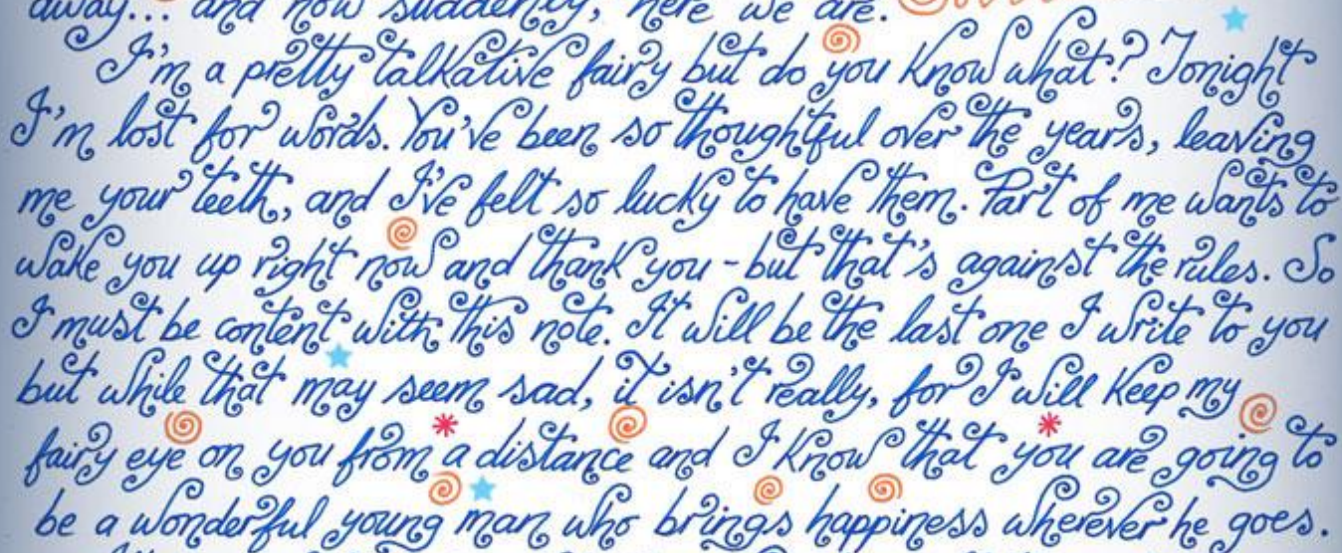 away... and now suddenly, here we are.
I'm a pretty talkative fairy but do you know what? Tonight
I'm lost for words. You've been so thoughtful over the years, leaving
me your teeth, and I've felt so lucky to have them. Part of me wants to
wake you up right now and thank you - but that's against the rules. So
I must be content with this note. It will be the last one I write to you
but while that may seem sad, it isn't really, for I will keep my
fairy eye on you from a distance and I know that you are going to
be a wonderful young man who brings happiness wherever he goes.